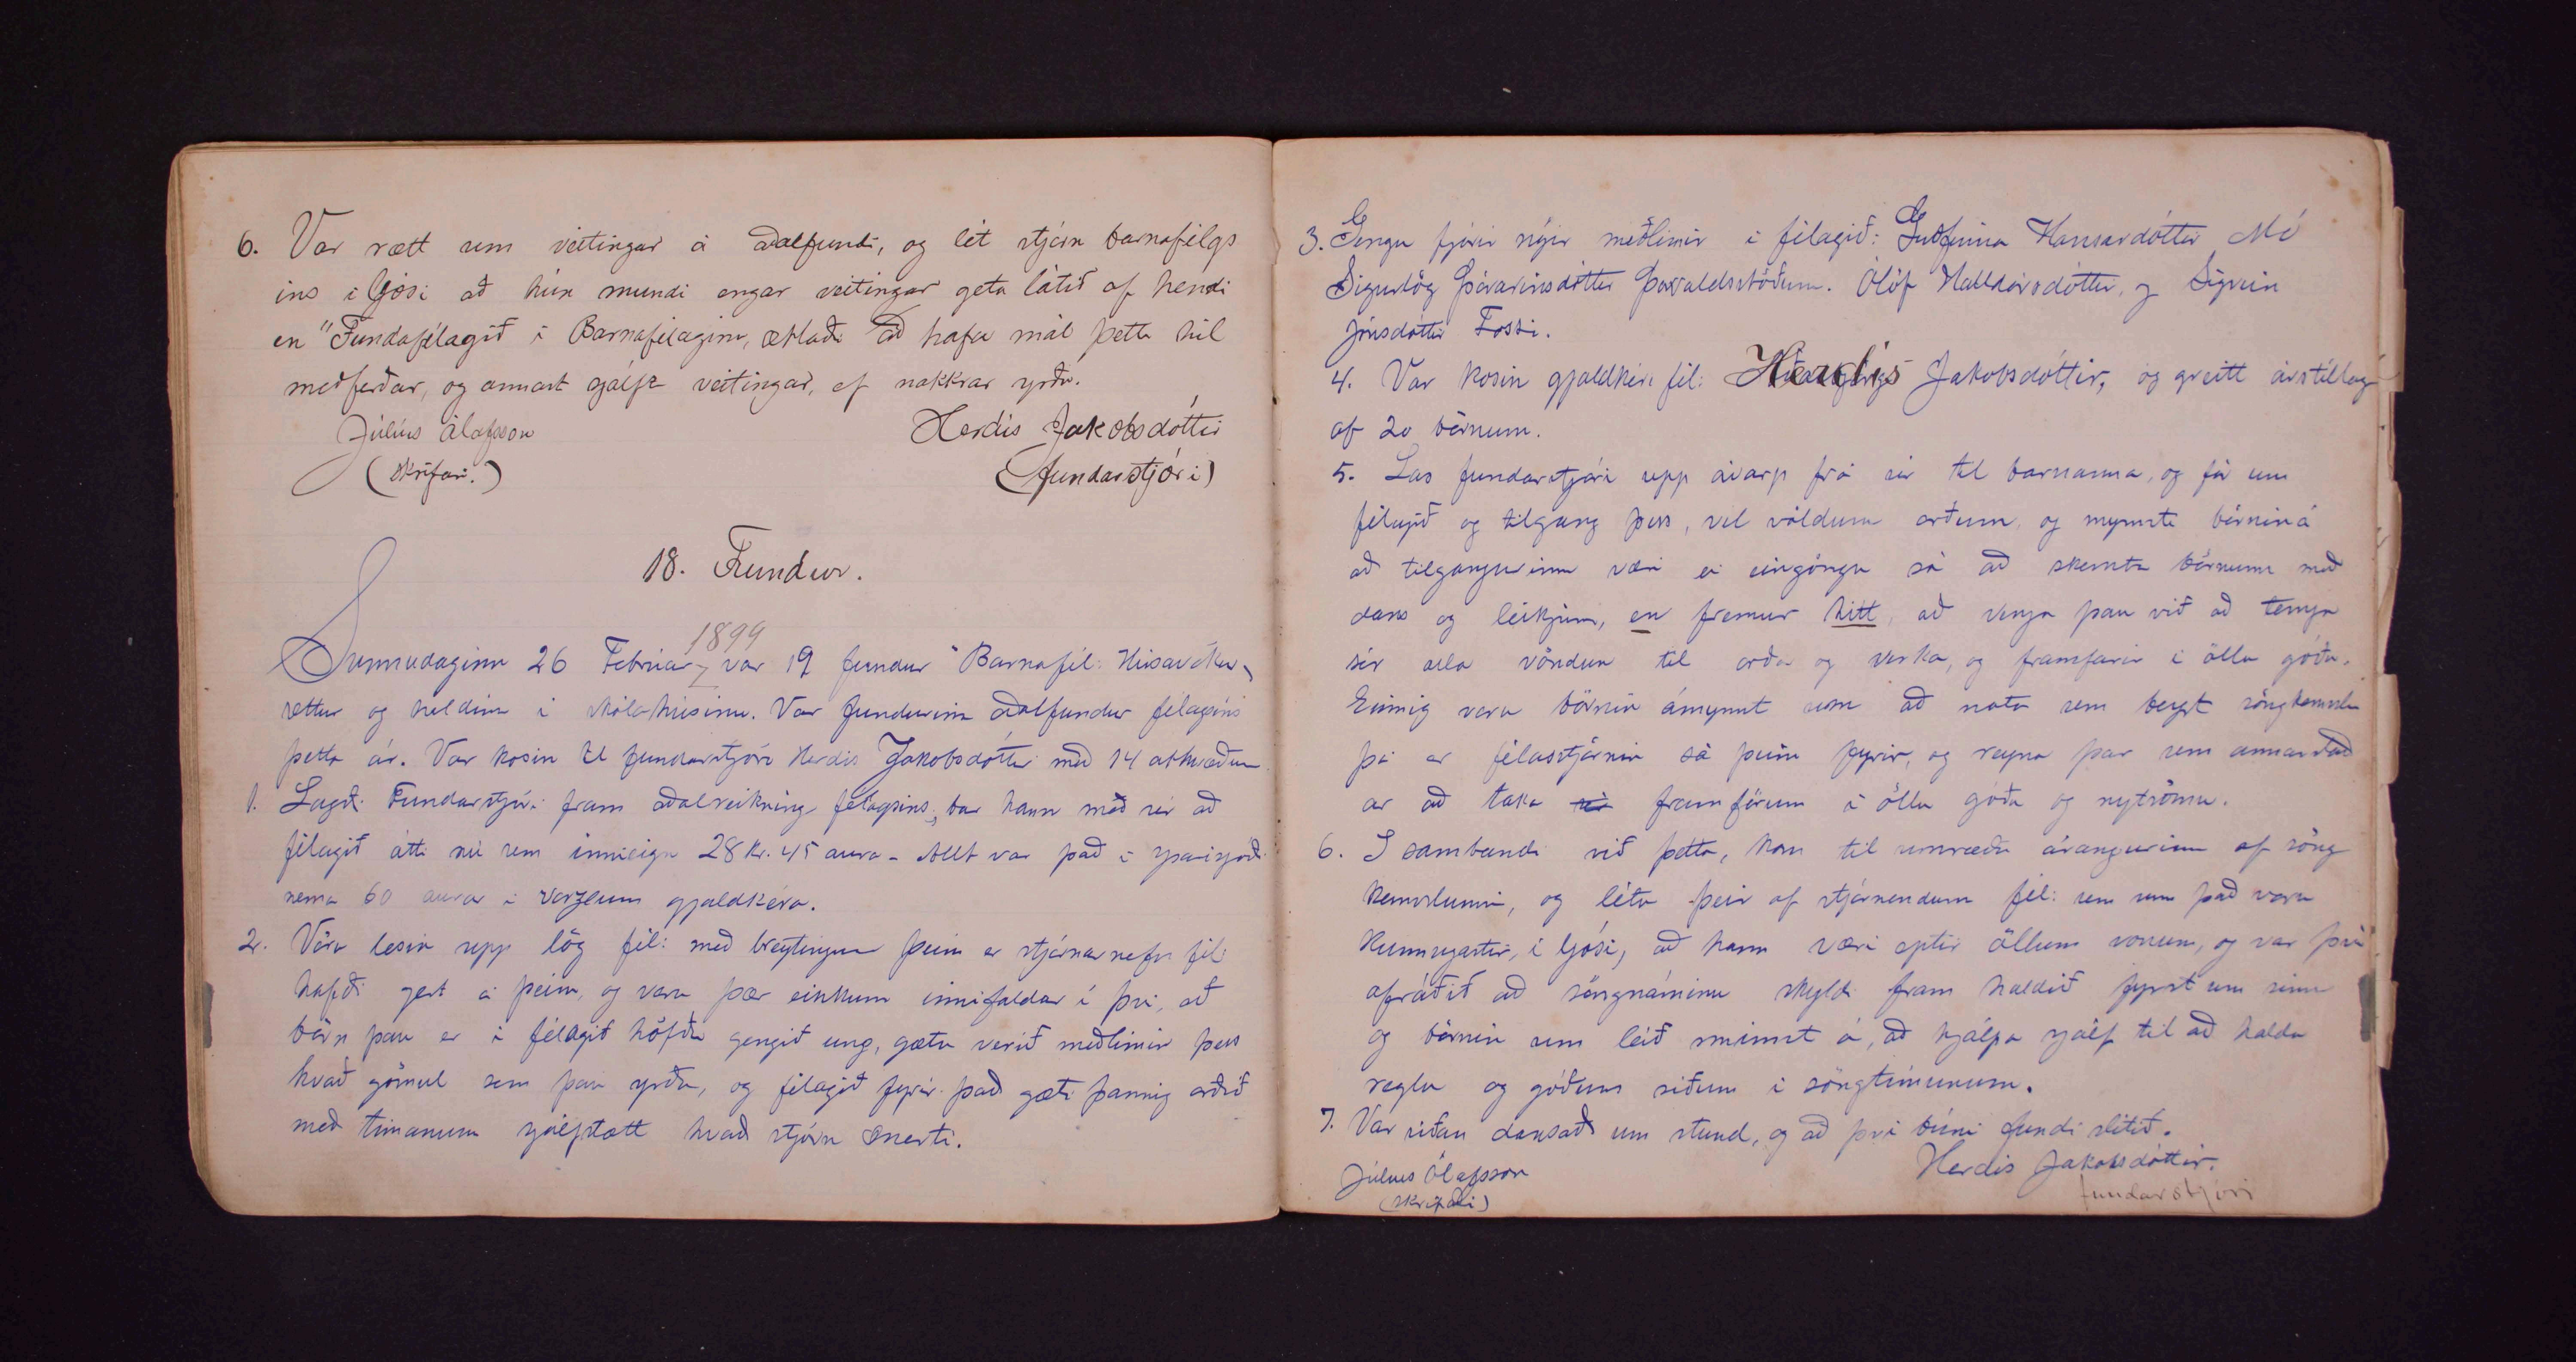 6. Var rætt um veitingar á aðalfundi, og lét stjórn barnafélgs
ins í ljósi að hún mundi engar veitingar geta látið af hendi
en "Fundafélagið í Barnafélaginu, ætlaði að hafa mál þetta til
meðferðar, og annast sjálft veitingar, ef nokkrar yrðu.
Júlíus Ólafsson Herdís Jakobsdóttir
(skrifari.) (fundarstjóri)
18. Fundur.
1899
Sunnudaginn 26 Febrúar, var 19 fundur "Barnafél: Húsavíkur"
settur og haldinn í skólahúsinu. Var fundurinn aðalfundur félagsins
þetta ár. Var kosin til fundarstjóra Herdís Jakobsdóttir með 14 atkvæðum
1. Lagði Fundarstjóri fram aðalreikning félagsins; bar hann með sér að
félagið átti nú sem innieign 28 kr. 45 aura - Allt var það í sparisjóði
nema 60 aurar í vörzlum gjaldkéra.
2. Vóru lesin upp lög fél: með breytingum þeim er stjórnarnefn fél:
hafði gert á þeim, og voru þær einkum innifaldar í því, að
börn þau er í félagið höfðu gengið ung, gætu verið meðlimir þess
hvað gömul sem þau yrðu, og félagið fyrir það gæti þannig orðið
með tímanum sjálfstætt hvað stjórn snerti.
3. Gengu fjórir nýir meðlimir í félagið: Guðfinna Hansardóttir
Sigurlög Þórarinsdóttir Þorvaldsstöðum. Ólöf Halldórsdóttir, og Sigrún
Jónsdóttir Fossi.
4. Var kosin gjaldkeri fél: Herdís Jakobsdóttir, og greitt árstillag
af 20 börnum.
5. Las fundarstjóri upp ávarp frá sér til barnanna, og fór um
félagið og tilgang þess, vel völdum orðum, og mynnte börnin á
að tilgangurinn væri ei eingöngu sá að skemta börnunum með
dans og leikjum, en fremur hitt, að venja þau við að temja
sér alla vöndun til orða og verka, og framfarir í öllu góðu.
Einnig voru börnin ámynnt um að nota sem bezt söngkennslu
þá er félastjórnin sá þeim fyrir, og reyna þar sem annarstað
ar að taka framförum í öllu góðu og nytsömu.
6. Í sambandi við þetta, kom til umræðu árangurinn af söng
kennslunni, og létu þeir af stjórnendum fél: sem um það voru
kunnugastir, í ljósi, að hann væri eptir öllum vonum, og var því
afráðið að söngnáminu skyldi fram haldið fyrst um sinn
og börnin um leið minnst á, að hjálpa sjálf til að halda
reglu og góðum siðum í söngtímunum.
7. Var síðan dansað um stund, og að því búni fundi slitið.
Júlíus Ólafsson Herdís Jakobsdóttir.
(skrifari) fundarstjóri